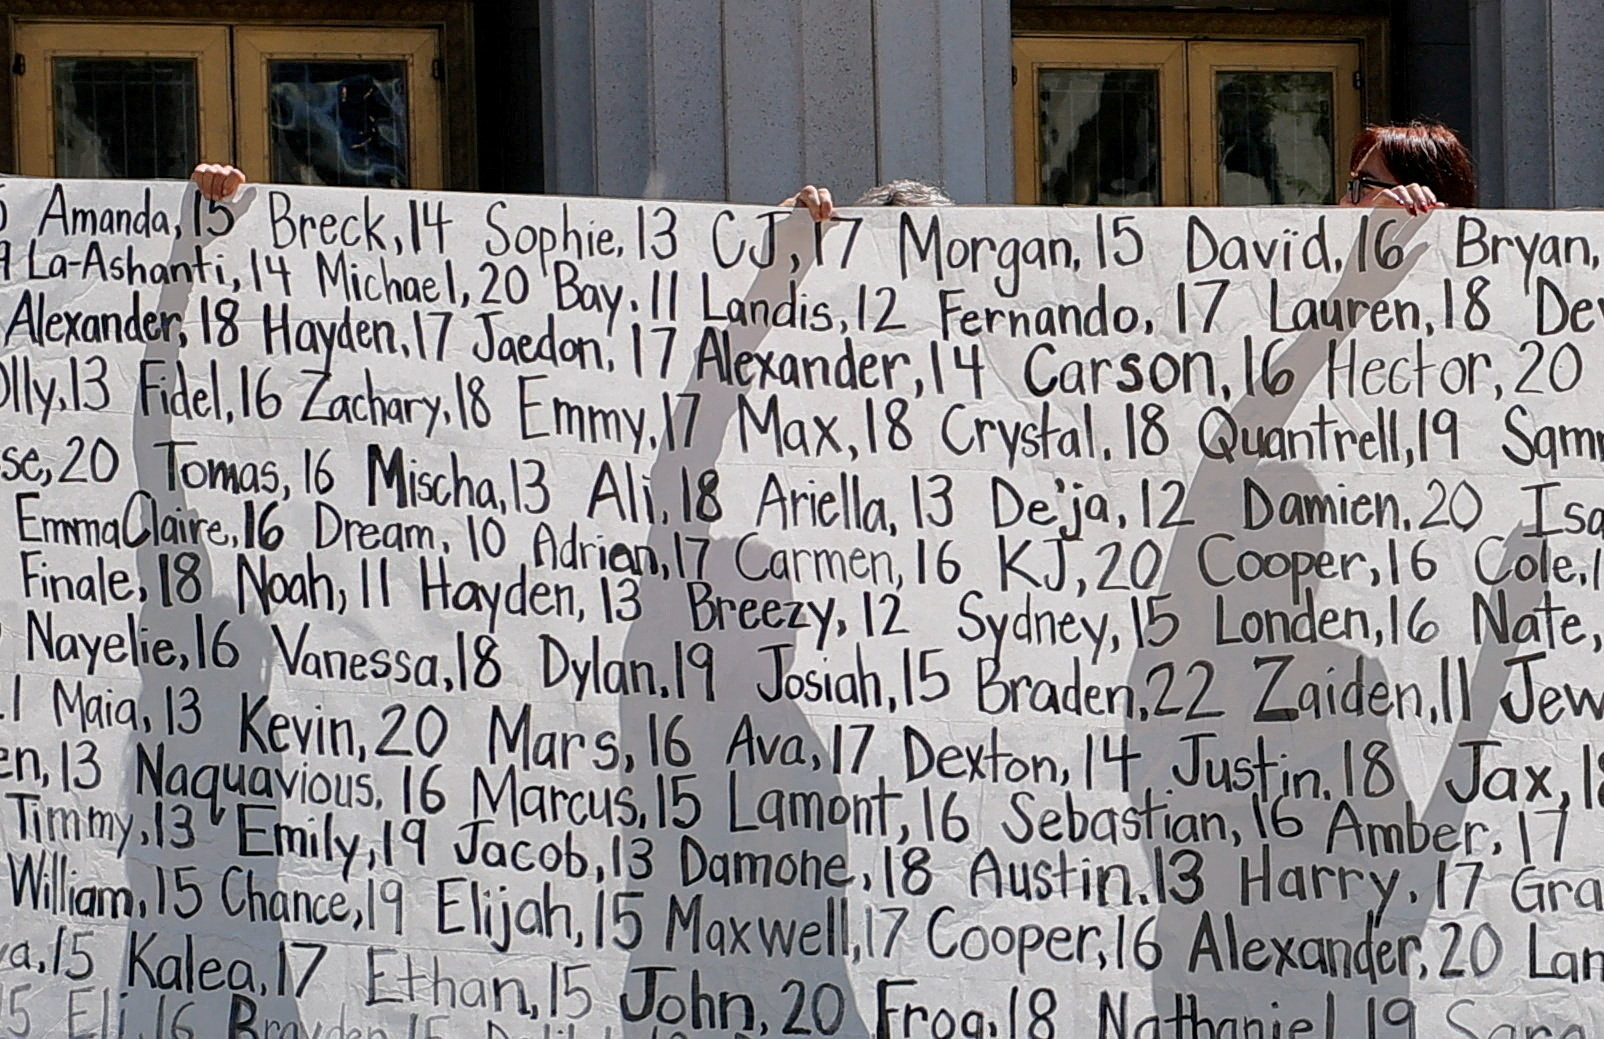 Amanda, 15 Breck, 14 Sophie, 13 CJ, 17 Morgan, 15 Davïd, 16 Bryan,
9 La-Ashanti, 14 Michael, 20 Bay, 11 Landis, 12 Fernando, 17 Lauren, 18
Alexander, 18 Hayden, 17 Jaedon, 17 Alexander, 14 Carson, 16 Hector, 20
13 Fidel, 16 Zachary, 18 Emmy, 17 Max, 18 Crystal, 18 Quantrell, 19
20 Tomas, 16 Mischa, 13 Ali, 18 Ariella, 13 De'ja, 12 Damien, 20
EmmaClaire, 16 Dream, 10 Adrian, 17 Carmen, 16 KJ, 20 Cooper, 16 Cole,
Finale, 18 Noah, 11 Hayden, 13 Breezy, 12 Sydney, 15 Londen, 16 Nate,
Nayelie, 16 Vanessa, 18 Dylan, 19 Josiah, 15 Braden, 22 Zaiden, 11
Maia, 13 Kevin, 20 Mars, 16 Ava, 17 Dexton, 14 Justin, 18 Jax, 18
13 Naquavious, 16 Marcus, 15 Lamont, 16 Sebastian, 16 Amber, 17
Timmy, 13 Emily, 19 Jacob, 13 Damone, 18 Austin, 13 Harry, 17
William, 15 Chance, 19 Elijah, 15 Maxwell, 17 Cooper, 16 Alexander, 20
15 Kalea, 17 Ethan, 15 John, 20 Frog, 18 Nathaniel, 19
Eli, 16 Brayden, 15